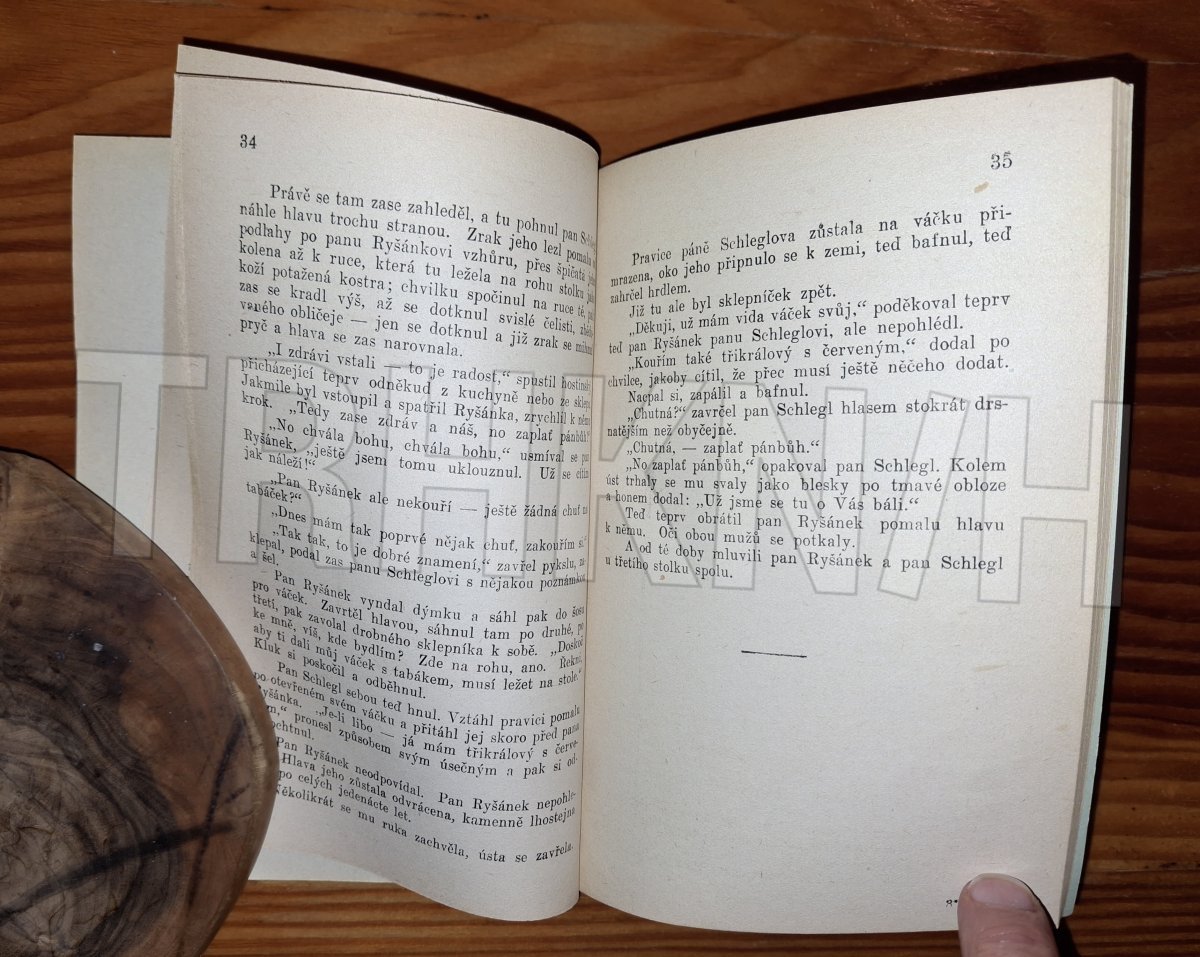 34
Právě se tam zase zahleděl, a tu pohnul pan
náhle hlavu trochu stranou. Zrak jeho lezl pomalu
podlahy po panu Ryšánkovi vzhůru, přes špičatá
kolena až k ruce, která tu ležela na rohu stolku
koží potažená kostra; chvilku spočinul na ruce té,
zas se kradl výš, až se dotknul svislé čelisti,
vaného obličeje — jen se dotknul a již zrak se
pryč a hlava se zas narovnala.
„I zdrávi vstali — to je radost,“ spustil
přicházející teprv odněkud z kuchyně nebo ze
Jakmile byl vstoupil a spatřil Ryšánka, zrychlil k
krok. „Tedy zase zdráv a náš, no zaplať pánbůh!
„No chvála bohu, chvála bohu,“ usmíval se pan
Ryšánek, „ještě jsem tomu uklouznul. Už se cítím
jak náleží!“
„Pan Ryšánek ale nekouří — ještě žádná chuť na
tabáček?“
„Dnes mám tak poprvé nějak chuť, zakouřím si.“
„Tak tak, to je dobré znamení,“ zavřel pykslu,
klepal, podal zas panu Schleglovi s nějakou poznámkou
a šel.
Pan Ryšánek vyndal dýmku a sáhl pak do šosu
pro váček. Zavrtěl hlavou, sáhnul tam po druhé, po
třetí, pak zavolal drobného sklepníka k sobě. „Doskoč
ke mně, víš, kde bydlím? Zde na rohu, ano. Řekni,
aby ti dali můj váček s tabákem, musí ležet na stole.“
Kluk si poskočil a odběhnul.
Pan Schlegl sebou teď hnul. Vztáhl pravici pomalu
po otevřeném svém váčku a přitáhl jej skoro před pana
Ryšánka. „Je-li libo — já mám tříkrálový s červe-
pronesl způsobem svým úsečným a pak si od-
Pan Ryšánek neodpovídal. Pan Ryšánek nepohlé-
Hlava jeho zůstala odvrácena, kamenně lhostejna
po celých jedenácte let.
Několikrát se mu ruka zachvěla, ústa se zavřela.
35
Pravice páně Schleglova zůstala na váčku při-
mrazena, oko jeho připnulo se k zemi, teď bafnul, teď
zahrčel hrdlem.
Již tu ale byl sklepníček zpět.
„Děkuji, už mám vida váček svůj,“ poděkoval teprv
teď pan Ryšánek panu Schleglovi, ale nepohlédl.
„Kouřím také tříkrálový s červeným,“ dodal po
chvilce, jakoby cítil, že přec musí ještě něčeho dodat.
Nacpal si, zapálil a bafnul.
„Chutná?“ zavrčel pan Schlegl hlasem stokrát drs-
natějším než obyčejně.
„Chutná, — zaplať pánbůh.“
„No zaplať pánbůh,“ opakoval pan Schlegl. Kolem
úst trhaly se mu svaly jako blesky po tmavé obloze
a honem dodal: „Už jsme se tu o Vás báli.“
Teď teprv obrátil pan Ryšánek pomalu hlavu
k němu. Oči obou mužů se potkaly.
A od té doby mluvili pan Ryšánek a pan Schlegl
u třetího stolku spolu.
TRHKNIH